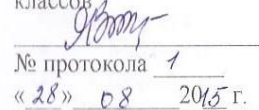 классов
№ протокола 1
« 28 » 08 2015 г.